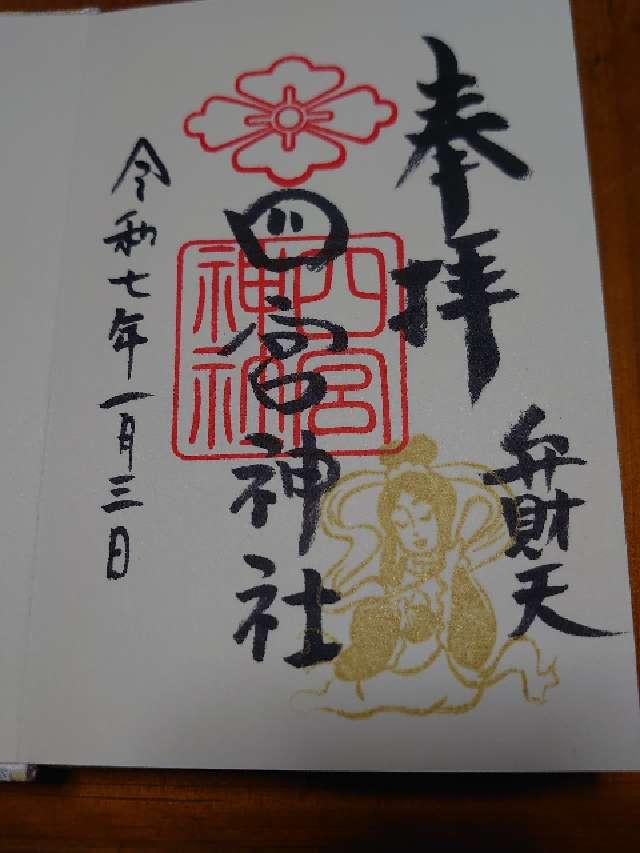 奉拝
弁財天
四宮神社
四宮神社
令和七年一月三日